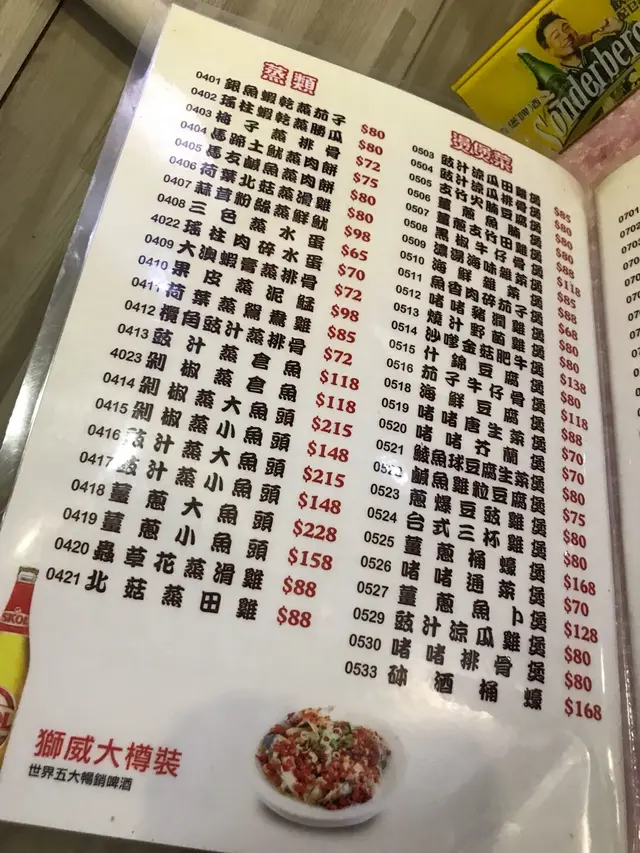 蒸類
0401 銀魚蝦乾蒸茄子 $80
0402 瑤柱蝦乾蒸勝瓜 $80
0403 梅子蒸排骨 $72
0404 馬蹄土魷蒸肉餅 $75
0405 馬友鹹魚蒸肉餅 $80
0406 荷葉北菇蒸滑雞 $80
0407 蒜茸粉絲蒸鮮魷 $98
0408 三色蒸水蛋 $65
4022 瑤柱肉碎蒸水蛋 $70
0409 大澳蝦膏蒸排骨 $72
0410 果皮蒸泥鯭 $98
0411 荷葉蒸鴛鴦雞 $85
0412 欖角豉汁蒸排骨 $72
0413 豉汁蒸倉魚 $118
4023 剁椒蒸倉魚 $118
0414 剁椒蒸大魚頭 $215
0415 剁椒蒸小魚頭 $148
0416 豉汁蒸大魚頭 $215
0417 豉汁蒸小魚頭 $148
0418 薑蔥大魚頭 $228
0419 薑蔥小魚頭 $158
0420 蟲草花蒸滑雞 $88
0421 北菇蒸田雞 $88
煲煲菜
0503 豉汁涼瓜田雞煲 $85
0504 豉汁涼瓜排骨煲 $80
0505 支竹火腩豆腐煲 $80
0506 薑蔥魚腩煲 $80
0507 薑蔥支竹田雞煲 $88
0508 黑椒牛仔骨煲 $118
0509 濃湯海味雜菜煲 $85
0510 海鮮雜菜煲 $88
0511 魚香肉碎茄子煲 $68
0512 啫啫豬潤雞煲 $80
0513 燒汁野菌肥牛煲 $80
0514 沙嗲金菇肥牛煲 $138
0515 什錦豆腐煲 $80
0516 茄子牛仔骨煲 $118
0518 海鮮豆腐煲 $88
0519 啫啫唐生菜煲 $70
0520 啫啫芥蘭煲 $70
0521 鯪魚球豆腐生菜煲 $80
0522 鹹魚雞粒豆腐煲 $75
0523 蔥爆豆豉雞煲 $80
0524 台式三杯雞煲 $80
0525 薑蔥桶蠔煲 $168
0526 啫啫通菜煲 $70
0527 薑蔥魚卜煲 $128
0529 豉汁涼瓜雞煲 $80
0530 啫啫排骨煲 $80
0533 砵酒桶蠔 $168
獅威大樽裝
世界五大暢銷啤酒
SKOL
0701
0702